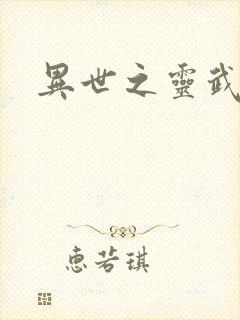 異世之靈武
惠若琪